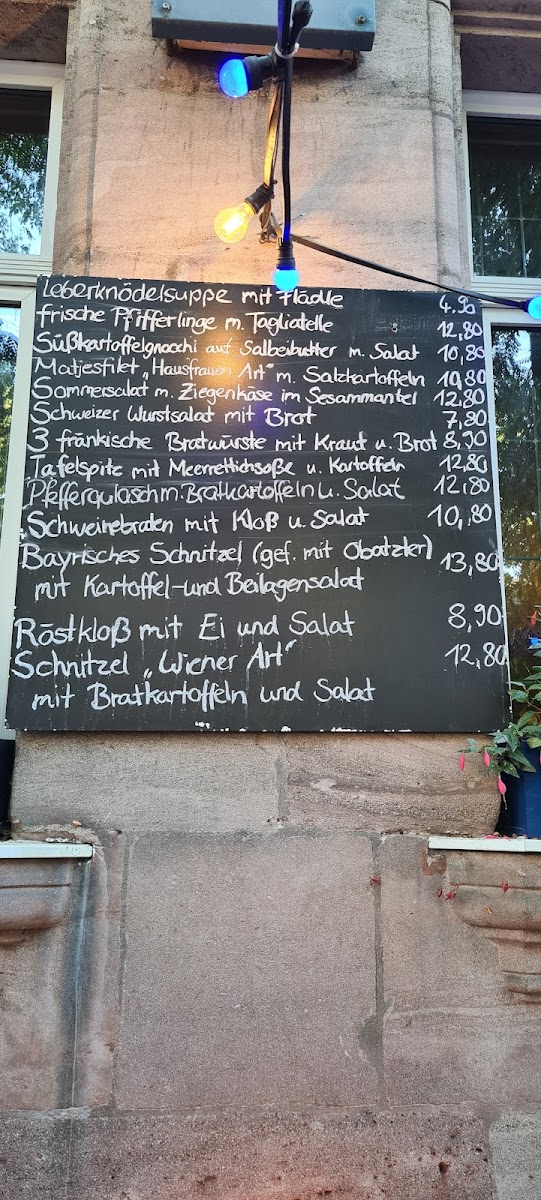 Leberknödelsuppe mit Flädle 4.90
frische Pfifferlinge m. Tagliatelle 12,80
Süßkartoffelgnocchi auf Salbeibutter m. Salat 10,80
Matjesfilet „Hausfrauen Art" m. Salzkartoffeln 10,80
Sommersalat m. Ziegenkäse im Sesammantel 12.80
Schweizer Wurstsalat mit Brot 7,80
3 fränkische Bratwürste mit Kraut u. Brot 8,90
Tafelspitz mit Meerrettichsoße u. Kartoffeln 12,80
Pfeffergulasch m. Bratkartoffeln u. Salat 12,80
Schweinebraten mit Kloß u. Salat 10,80
Bayrisches Schnitzel (gef. mit Obatzter) 13,80
mit Kartoffel-und Beilagensalat
Röstkloß mit Ei und Salat 8,90
Schnitzel „Wiener Art" 12,80
mit Bratkartoffeln und Salat